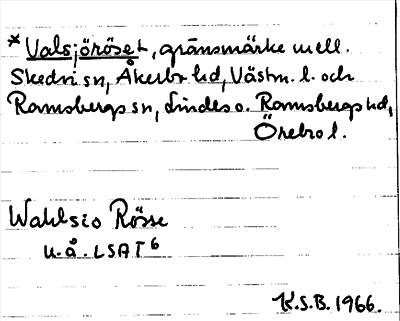 * Valsjöröset, gränsmärke mell.
Skedvi sn, Åkerbo hd, Västm. l. och
Ramsbergs sn, Lindes o. Ramsbergs hd,
Örebro l.
Wahlsio Rösse
u.å. LSA T 6
K.S.B. 1966.